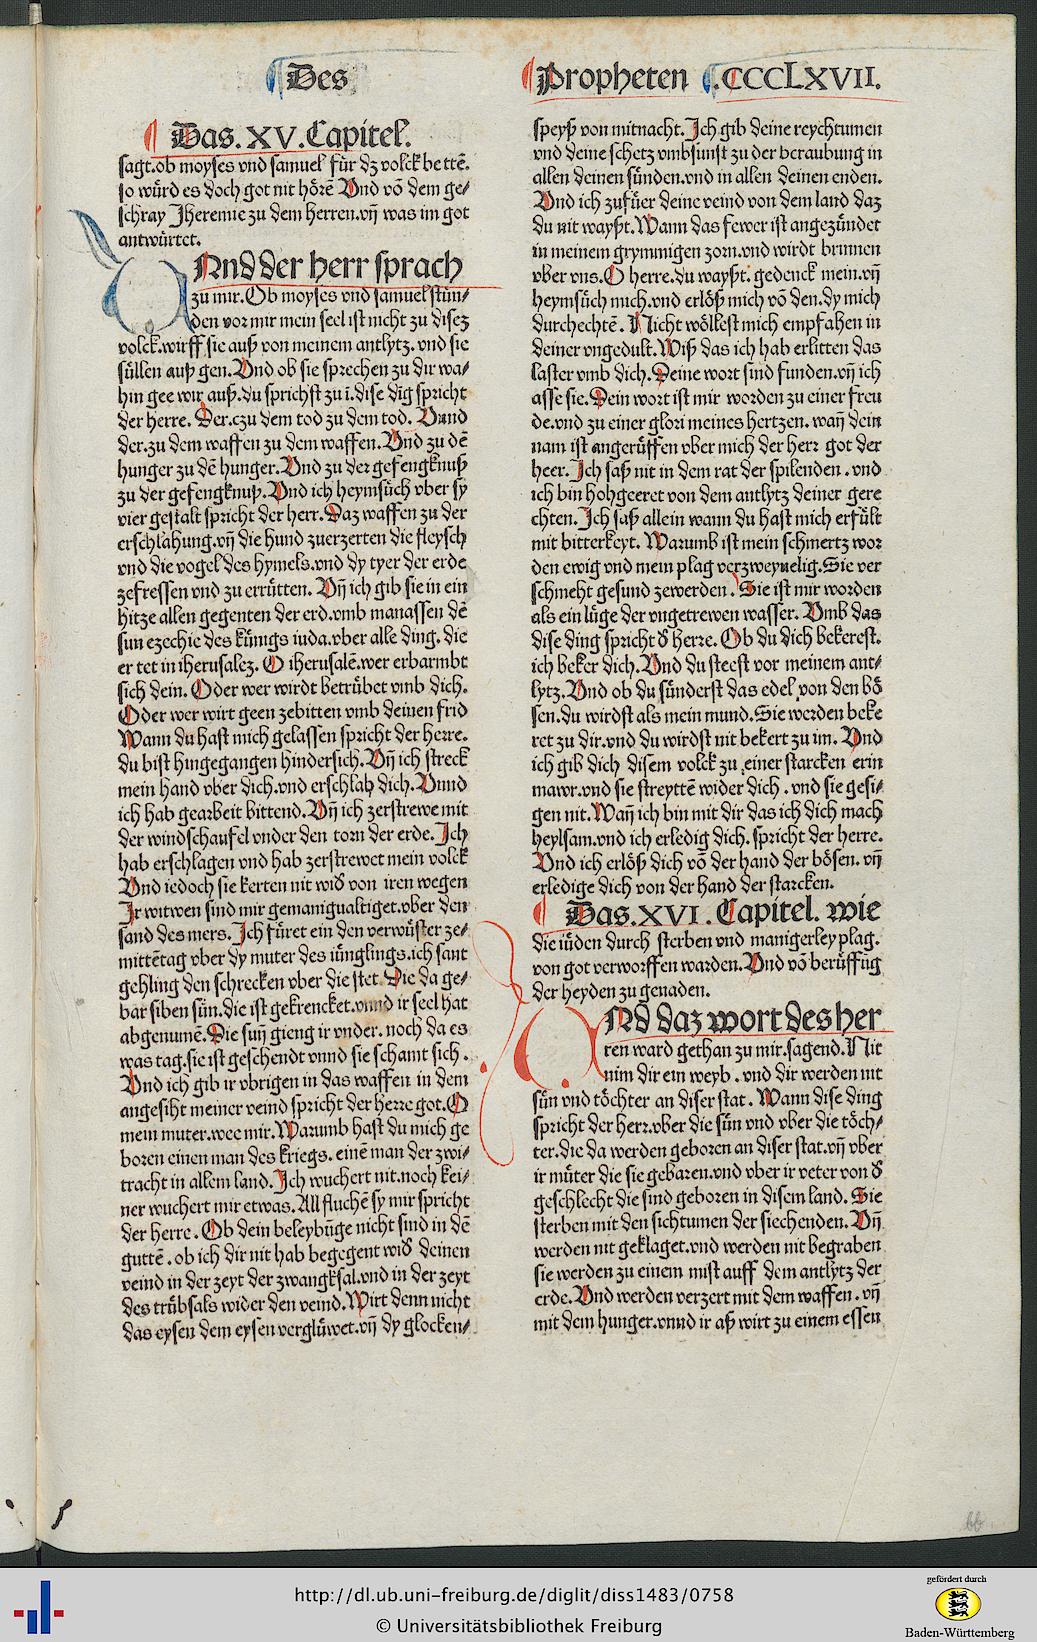 Des
Propheten .CCCLXVII.
Das. XV. Capitel.
sagt. ob moyses vnd samuel für dz volck bettē.
so würd es doch got nit hörē Vnd vō dem ge⸗
schray Jheremie zu dem herren. vñ was im got
antwürtet.
VNnd der herr sprach
zu mir. Ob moyses vnd samuel stün⸗
den vor mir mein seel ist nicht zu disez
volck. wirff sie auß von meinem antlytz. vnd sie
süllen auß gen. Vnd ob sie sprechen zu dir wa⸗
hin gee wir auß. du sprichst zu ī. dise dīg spricht
der herre. Der. czu dem tod zu dem tod. Vnnd
der. zu dem waffen zu dem waffen. Vnd zu dē
hunger zu dē hunger. Vnd zu der gefengknuß
zu der gefengknuß. Vnd ich heymsüch vber sy
vier gestalt spricht der herr. Daz waffen zu der
erschlahung. vñ die hund zuerzerten die fleysch
vnd die vogel des hymels. vnd dy tyer der erde
zefressen vnd zu errütten. Vñ ich gib sie in ein
hitze allen gegenten der erd. vmb manassen dē
sun ezechie des künigs iuda. vber alle ding. die
er tet in iherusalez. O iherusalē. wer erbarmbt
sich dein. Oder wer wirdt betrübet vmb dich.
Oder wer wirt geen zebitten vmb deinen frid
Wann du hast mich gelassen spricht der herre.
du bist hingegangen hindersich. Vñ ich streck
mein hand vber dich. vnd erschlah dich. Vnnd
ich hab gearbeit bittend. Vñ ich zerstrewe mit
der windschaufel vnder den torn der erde. Ich
hab erschlagen vnd hab zerstrewet mein volck
Vnd iedoch sie kerten nit wid von iren wegen
Ir witwen sind mir gemanigualtiget. vber den
sand des mers. Ich füret ein den verwüster ze⸗
mittētag vber dy muter des iünglings. ich sant
gehling den schrecken vber die stet. Die da ge⸗
bar siben sün. die ist gekrencket. vnnd ir seel hat
abgenumē. Die suñ gieng ir vnder. noch da es
was tag. sie ist geschendt vnnd sie schamt sich.
Vnd ich gib ir vbrigen in das waffen in dem
angesiht meiner veind spricht der herre got. O
mein muter. wee mir. Warumb hast du mich ge
boren einen man des kriegs. einē man der zwi⸗
tracht in allem land. Ich wuchert nit. noch kei⸗
ner wuchert mir etwas. All fluchē sy mir spricht
der herre. Ob dein beleybūge nicht sind in dē
guttē. ob ich dir nit hab begegent wid deinen
veind in der zeyt der zwangksal. vnd in der zeyt
des trübsals wider den veind. Wirt denn nicht
das eysen dem eysen verglüwet. vñ dy glocken⸗
speyß von mitnacht. Ich gib deine reychtumen
vnd deine schetz vmbsunst zu der beraubung in
allen deinen sünden. vnd in allen deinen enden.
Vnd ich zufüer deine veind von dem land daz
du nit wayßt. Wann das fewer ist angezündet
in meinem grymmigen zorn. vnd wirdt brinnen
vber vns. O herre. du wayßt. gedenck mein. vñ
heymsüch mich. vnd erlöß mich vō den. dy mich
durchechtē. Nicht wöllest mich empfahen in
deiner vngedult. Wiß das ich hab erlitten das
laster vmb dich. Deine wort sind funden. vñ ich
asse sie. Dein wort ist mir worden zu einer freu
de. vnd zu einer glori meines hertzen. wañ dein
nam ist angerüffen vber mich der herr got der
heer. Ich saß nit in dem rat der spilenden. vnd
ich bin hohgeeret von dem antlytz deiner gere
chten. Ich saß allein wann du hast mich erfült
mit bitterkeyt. Warumb ist mein schmertz wor
den ewig vnd mein plag verzweyuelig. Sie ver
schmeht gesund zewerden. Sie ist mir worden
als ein lüge der vngetrewen wasser. Vmb das
dise ding spricht d herre. Ob du dich bekerest.
ich beker dich. Vnd du steest vor meinem ant⸗
lytz. Vnd ob du sünderst das edel von den bö
sen. du wirdst als mein mund. Sie werden beke
ret zu dir. vnd du wirdst nit bekert zu im. Vnd
ich gib dich disem volck zu einer starcken erin
mawr. vnd sie streyttē wider dich. vnd sie gesi⸗
gen nit. Wañ ich bin mit dir das ich dich mach
heylsam. vnd ich erledig dich. spricht der herre.
Vnd ich erlöß dich vō der hand der bösen. vñ
erledige dich von der hand der starcken.
Das. XVI. Capitel. wie
die iüden durch sterben vnd manigerley plag.
von got verworffen warden. Vnd vō berüffūg
der heyden zu genaden.
VNd daz wort des her
ren ward gethan zu mir. sagend. Nit
nim dir ein weyb. vnd dir werden nit
sün vnd töchter an diser stat. Wann dise ding
spricht der herr. vber die sün vnd vber die töch⸗
ter. die da werden geboren an diser stat. vñ vber
ir müter die sie gebaren. vnd vber ir veter von d
geschlecht die sind geboren in disem land. Sie
sterben mit den sichtumen der siechenden. Vñ
werden nit geklaget. vnd werden nit begraben
sie werden zu einem mist auff dem antlytz der
erde. Vnd werden verzert mit dem waffen. vñ
mit dem hunger. vnnd ir aß wirt zu einem essen
bb
http://dl.ub.uni-freiburg.de/diglit/diss1483/0758
© Universitätsbibliothek Freiburg
gefördert durch
Baden-Württemberg